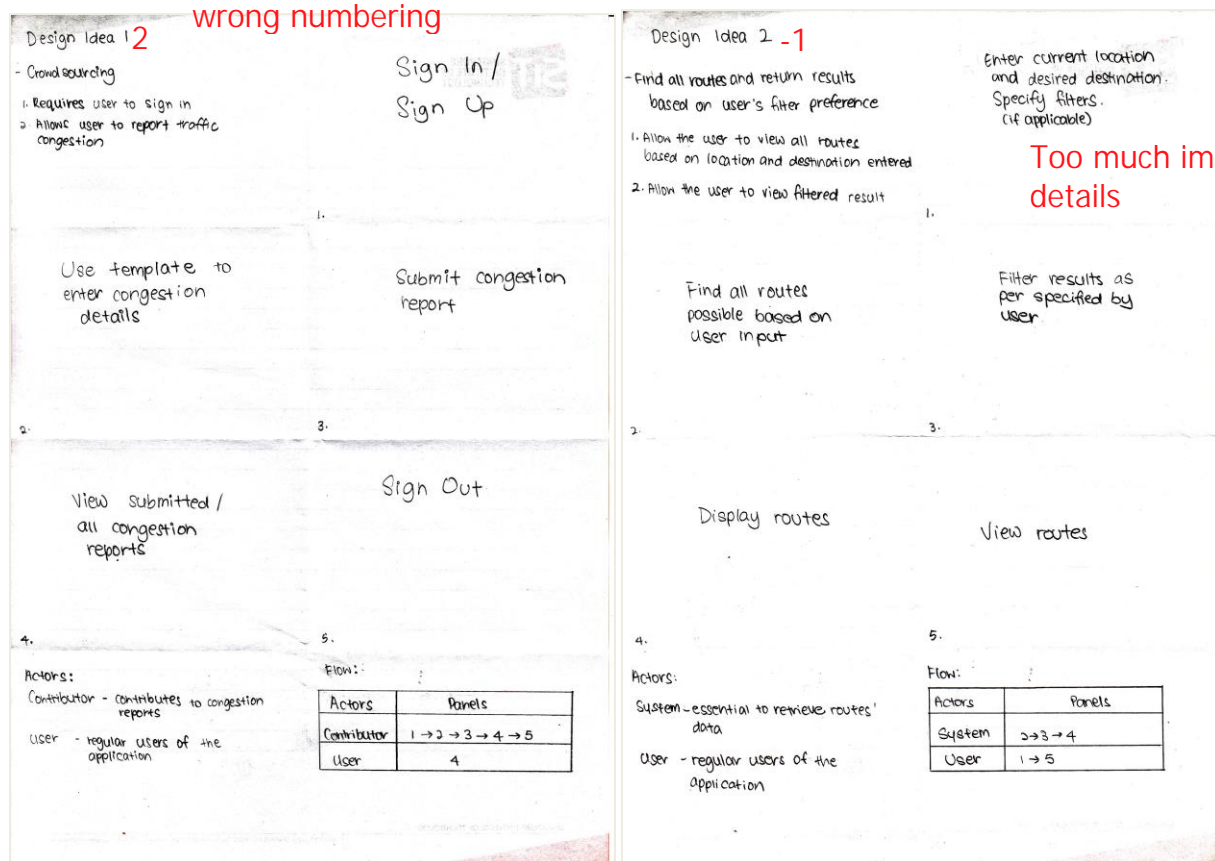 wrong numbering
Design Idea 1 2
- Crowdsourcing
1. Requires user to sign in
2. Allows user to report traffic
congestion
Sign In /
Sign Up
1.
Use template to
enter congestion
details
2.
Submit congestion
report
3.
View submitted /
all congestion
reports
4.
Sign Out
5.
Actors:
Contributor - contributes to congestion
reports
User - regular users of the
application
Flow:
Actors Panels
Contributor 1 → 2 → 3 → 4 → 5
User 4
Design Idea 2 -1
- Find all routes and return results
based on user's filter preference
1. Allow the user to view all routes
based on location and destination entered
2. Allow the user to view filtered result
Enter current location
and desired destination.
Specify filters.
(if applicable)
Too much im
details
1.
Find all routes
possible based on
user input
2.
Filter results as
per specified by
user
3.
Display routes
4.
View routes
5.
Actors:
System - essential to retrieve routes'
data
User - regular users of the
application
Flow:
Actors Panels
System 2→3→4
User 1→5